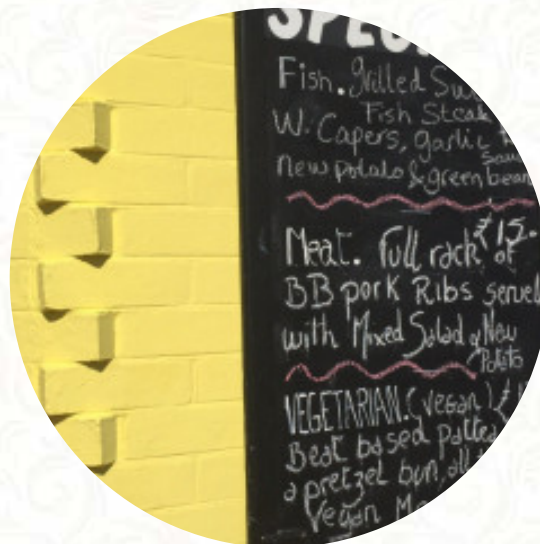 Fish. Grilled
Fish Steak
W. Capers, garlic
Sauce
New potato & green bean
£15.
Meat. Full rack of
BB pork Ribs served
with Mixed Salad & New
Potato
VEGETARIAN. (vegan) £
Beat based patted
a pretzel bun, all
Vegan